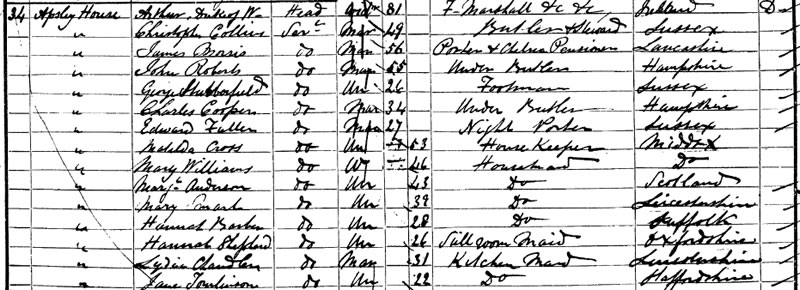 34 Apsley House Arthur, Duke of W- Head Widr 81 F- Marshall &c &c Ireland
" Christopher Collins Servt Mar 49 Butler & Steward Sussex
" James Morris do Mar 56 Porter & Chelsea Pensioner Lancashire
" John Roberts do Mar 55 Under Butler Hampshire
" George Stubberfield do Un 26 Footman Sussex
" Charles Coopers do Mar 34 Under Butler Hampshire
" Edward Fuller do Mar 27 Night Porter Sussex
" Matilda Cross do Un 53 House Keeper Middx
" Mary Williams do W 46 Housemaid Do
" Marjy Anderson do Un 43 Do Scotland
" Mary do Un 39 Do Leicestershire
" Hannah Barber do Un 28 Do Suffolk
" Hannah Shepherd do Un 26 Still room Maid Oxfordshire
" Lydia Chandler do Mar 31 Kitchen Maid Lincolnshire
" Jane Tomlinson do Un 22 Do Staffordshire